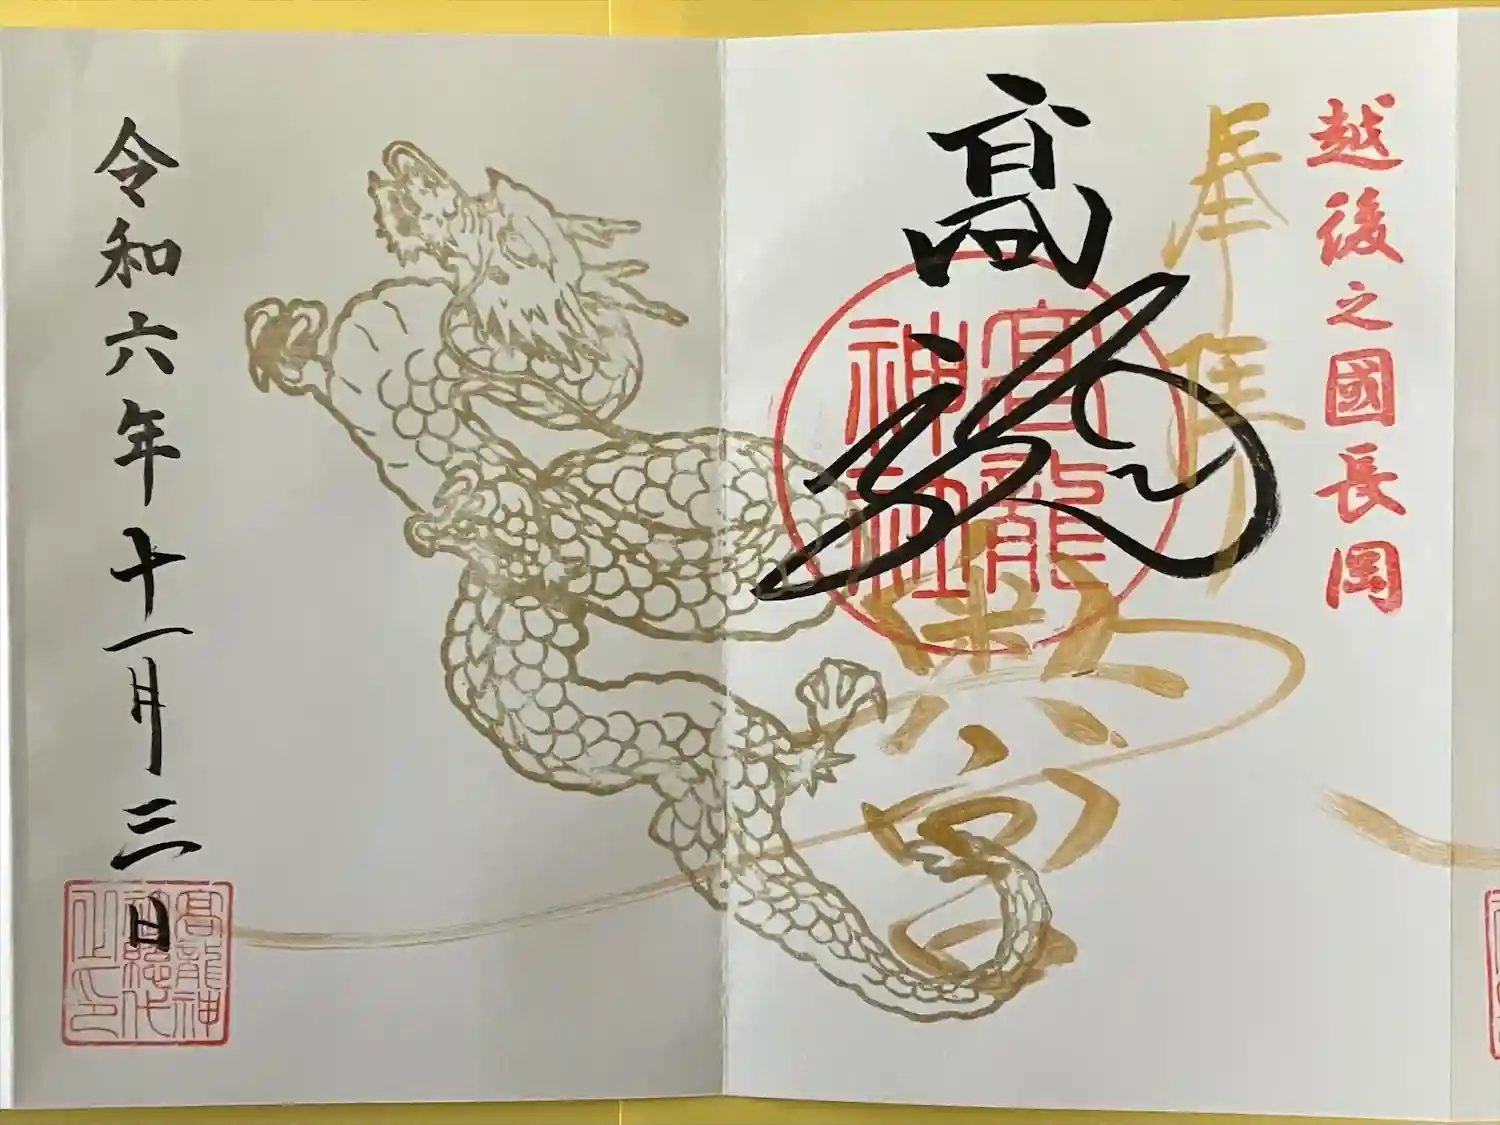 越後之國長岡
奉
髙龍
高龍
神社
奥宮
令和六年十一月三日
高龍神
社總代
之印